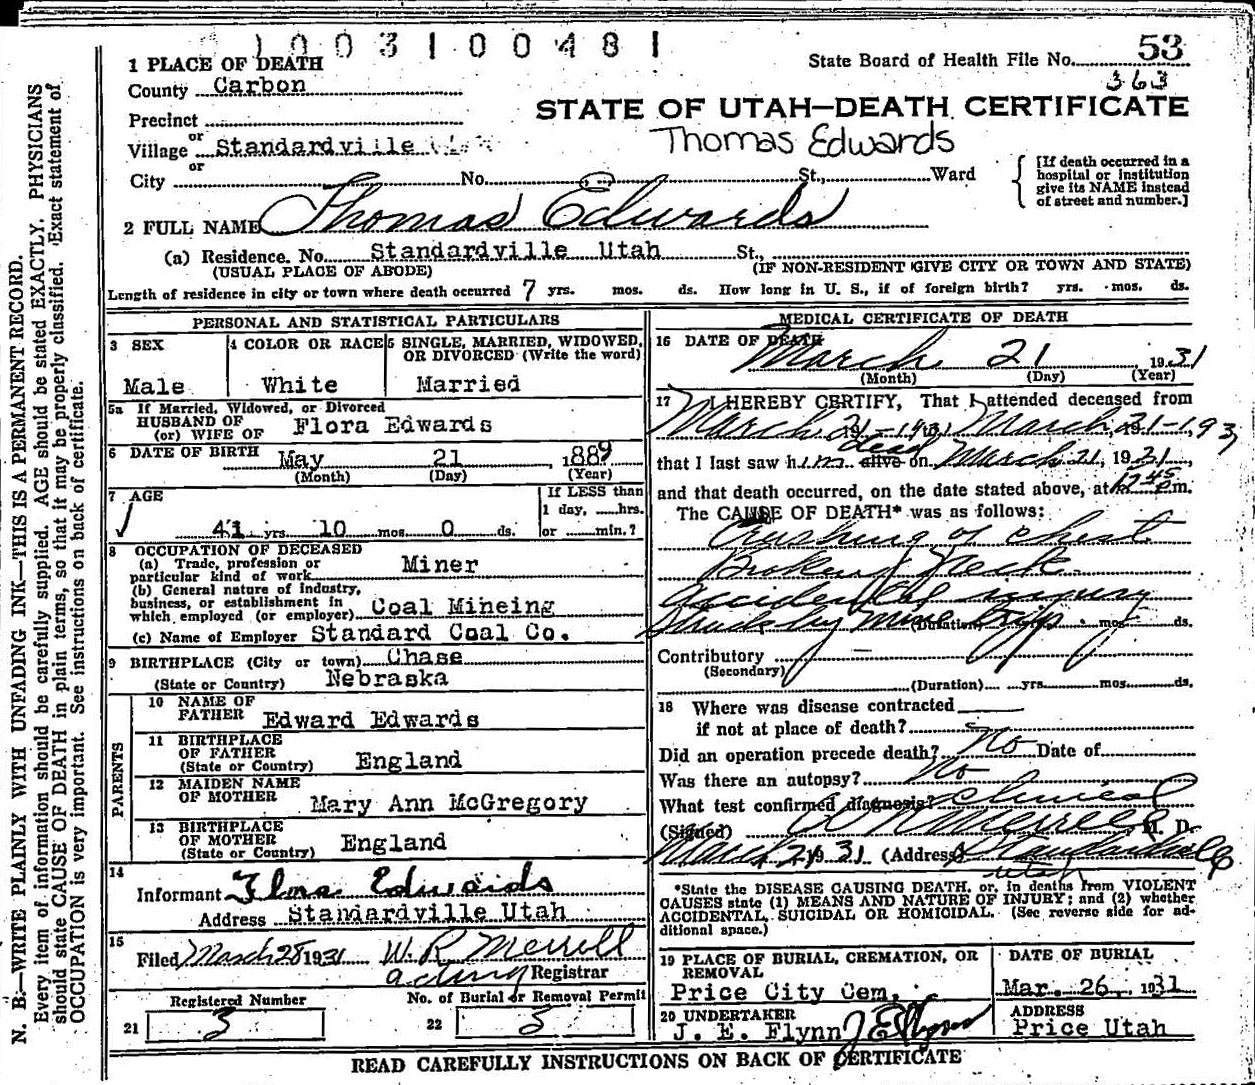 1003100481
State Board of Health File No. 53
363
1 PLACE OF DEATH
County Carbon
STATE OF UTAH—DEATH CERTIFICATE
Precinct
Thomas Edwards
or
Village Standardville
or
City No. St., Ward
[If death occurred in a
hospital or institution
give its NAME instead
of street and number.]
2 FULL NAME Thomas Edwards
(a) Residence. No. Standardville Utah St.,
(USUAL PLACE OF ABODE) (IF NON-RESIDENT GIVE CITY OR TOWN AND STATE)
Length of residence in city or town where death occurred 7 yrs. mos. ds. How long in U. S., if of foreign birth? yrs. mos. ds.
PERSONAL AND STATISTICAL PARTICULARS
3 SEX 4 COLOR OR RACE 5 SINGLE, MARRIED, WIDOWED,
OR DIVORCED (Write the word)
Male White Married
5a If Married, Widowed, or Divorced
HUSBAND OF
(or) WIFE OF Flora Edwards
6 DATE OF BIRTH May 21, 1889
(Month) (Day) (Year)
7 AGE If LESS than
1 day, hrs.
41 yrs. 10 mos. 0 ds. or min.?
8 OCCUPATION OF DECEASED
(a) Trade, profession or
particular kind of work Miner
(b) General nature of industry,
business, or establishment in
which employed (or employer) Coal Mineing
(c) Name of Employer Standard Coal Co.
9 BIRTHPLACE (City or town) Chase
(State or Country) Nebraska
PARENTS
10 NAME OF
FATHER Edward Edwards
11 BIRTHPLACE
OF FATHER
(State or Country) England
12 MAIDEN NAME
OF MOTHER Mary Ann McGregory
13 BIRTHPLACE
OF MOTHER
(State or Country) England
14
Informant Flora Edwards
Address Standardville Utah
15
Filed March 28 1931 W. R. Merrell
acting Registrar
Registered Number No. of Burial or Removal Permit
21 3 22 5
MEDICAL CERTIFICATE OF DEATH
16 DATE OF DEATH March 21 1931
(Month) (Day) (Year)
17 I HEREBY CERTIFY, That I attended deceased from
March 21-1931 March 21-1931
dead
that I last saw him alive on March 21, 1931,
and that death occurred, on the date stated above, at 12 45 P.m.
The CAUSE OF DEATH* was as follows:
Crushing of chest
Broken Neck
Accidental injury
Struck by mine Trip (Duration) mos. ds.
Contributory
(Secondary)
(Duration) yrs. mos. ds.
18 Where was disease contracted
if not at place of death?
Did an operation precede death? No Date of
Was there an autopsy? No
What test confirmed diagnosis? Clinical
(Signed) W R Merrell, M. D.
March 21 1931 (Address) Standardville
Utah
*State the DISEASE CAUSING DEATH, or, in deaths from VIOLENT
CAUSES state (1) MEANS AND NATURE OF INJURY; and (2) whether
ACCIDENTAL, SUICIDAL OR HOMICIDAL. (See reverse side for ad-
ditional space.)
19 PLACE OF BURIAL, CREMATION, OR
REMOVAL
Price City Cem.
DATE OF BURIAL
Mar. 26, 1931
20 UNDERTAKER
J. E. Flynn J E Flynn
ADDRESS
Price Utah
READ CAREFULLY INSTRUCTIONS ON BACK OF CERTIFICATE
N. B.—WRITE PLAINLY WITH UNFADING INK—THIS IS A PERMANENT RECORD.
Every item of information should be carefully supplied. AGE should be stated EXACTLY. PHYSICIANS
should state CAUSE OF DEATH in plain terms, so that it may be properly classified. Exact statement of
OCCUPATION is very important. See instructions on back of certificate.